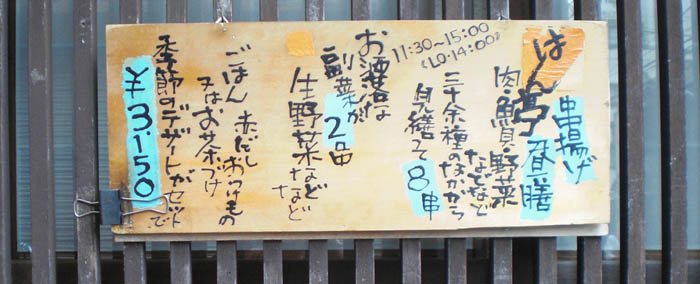 はん亭
串揚げ
昼膳
肉・魚貝・野菜
などなど
三十余種のなかから
見繕って8串
11:30~15:00
(LO・14:00)
お洒落な
副菜が2品
生野菜など
など
ごはん 赤だし おつけもの
又はお茶つけ
季節のデザートがセットで
¥3150